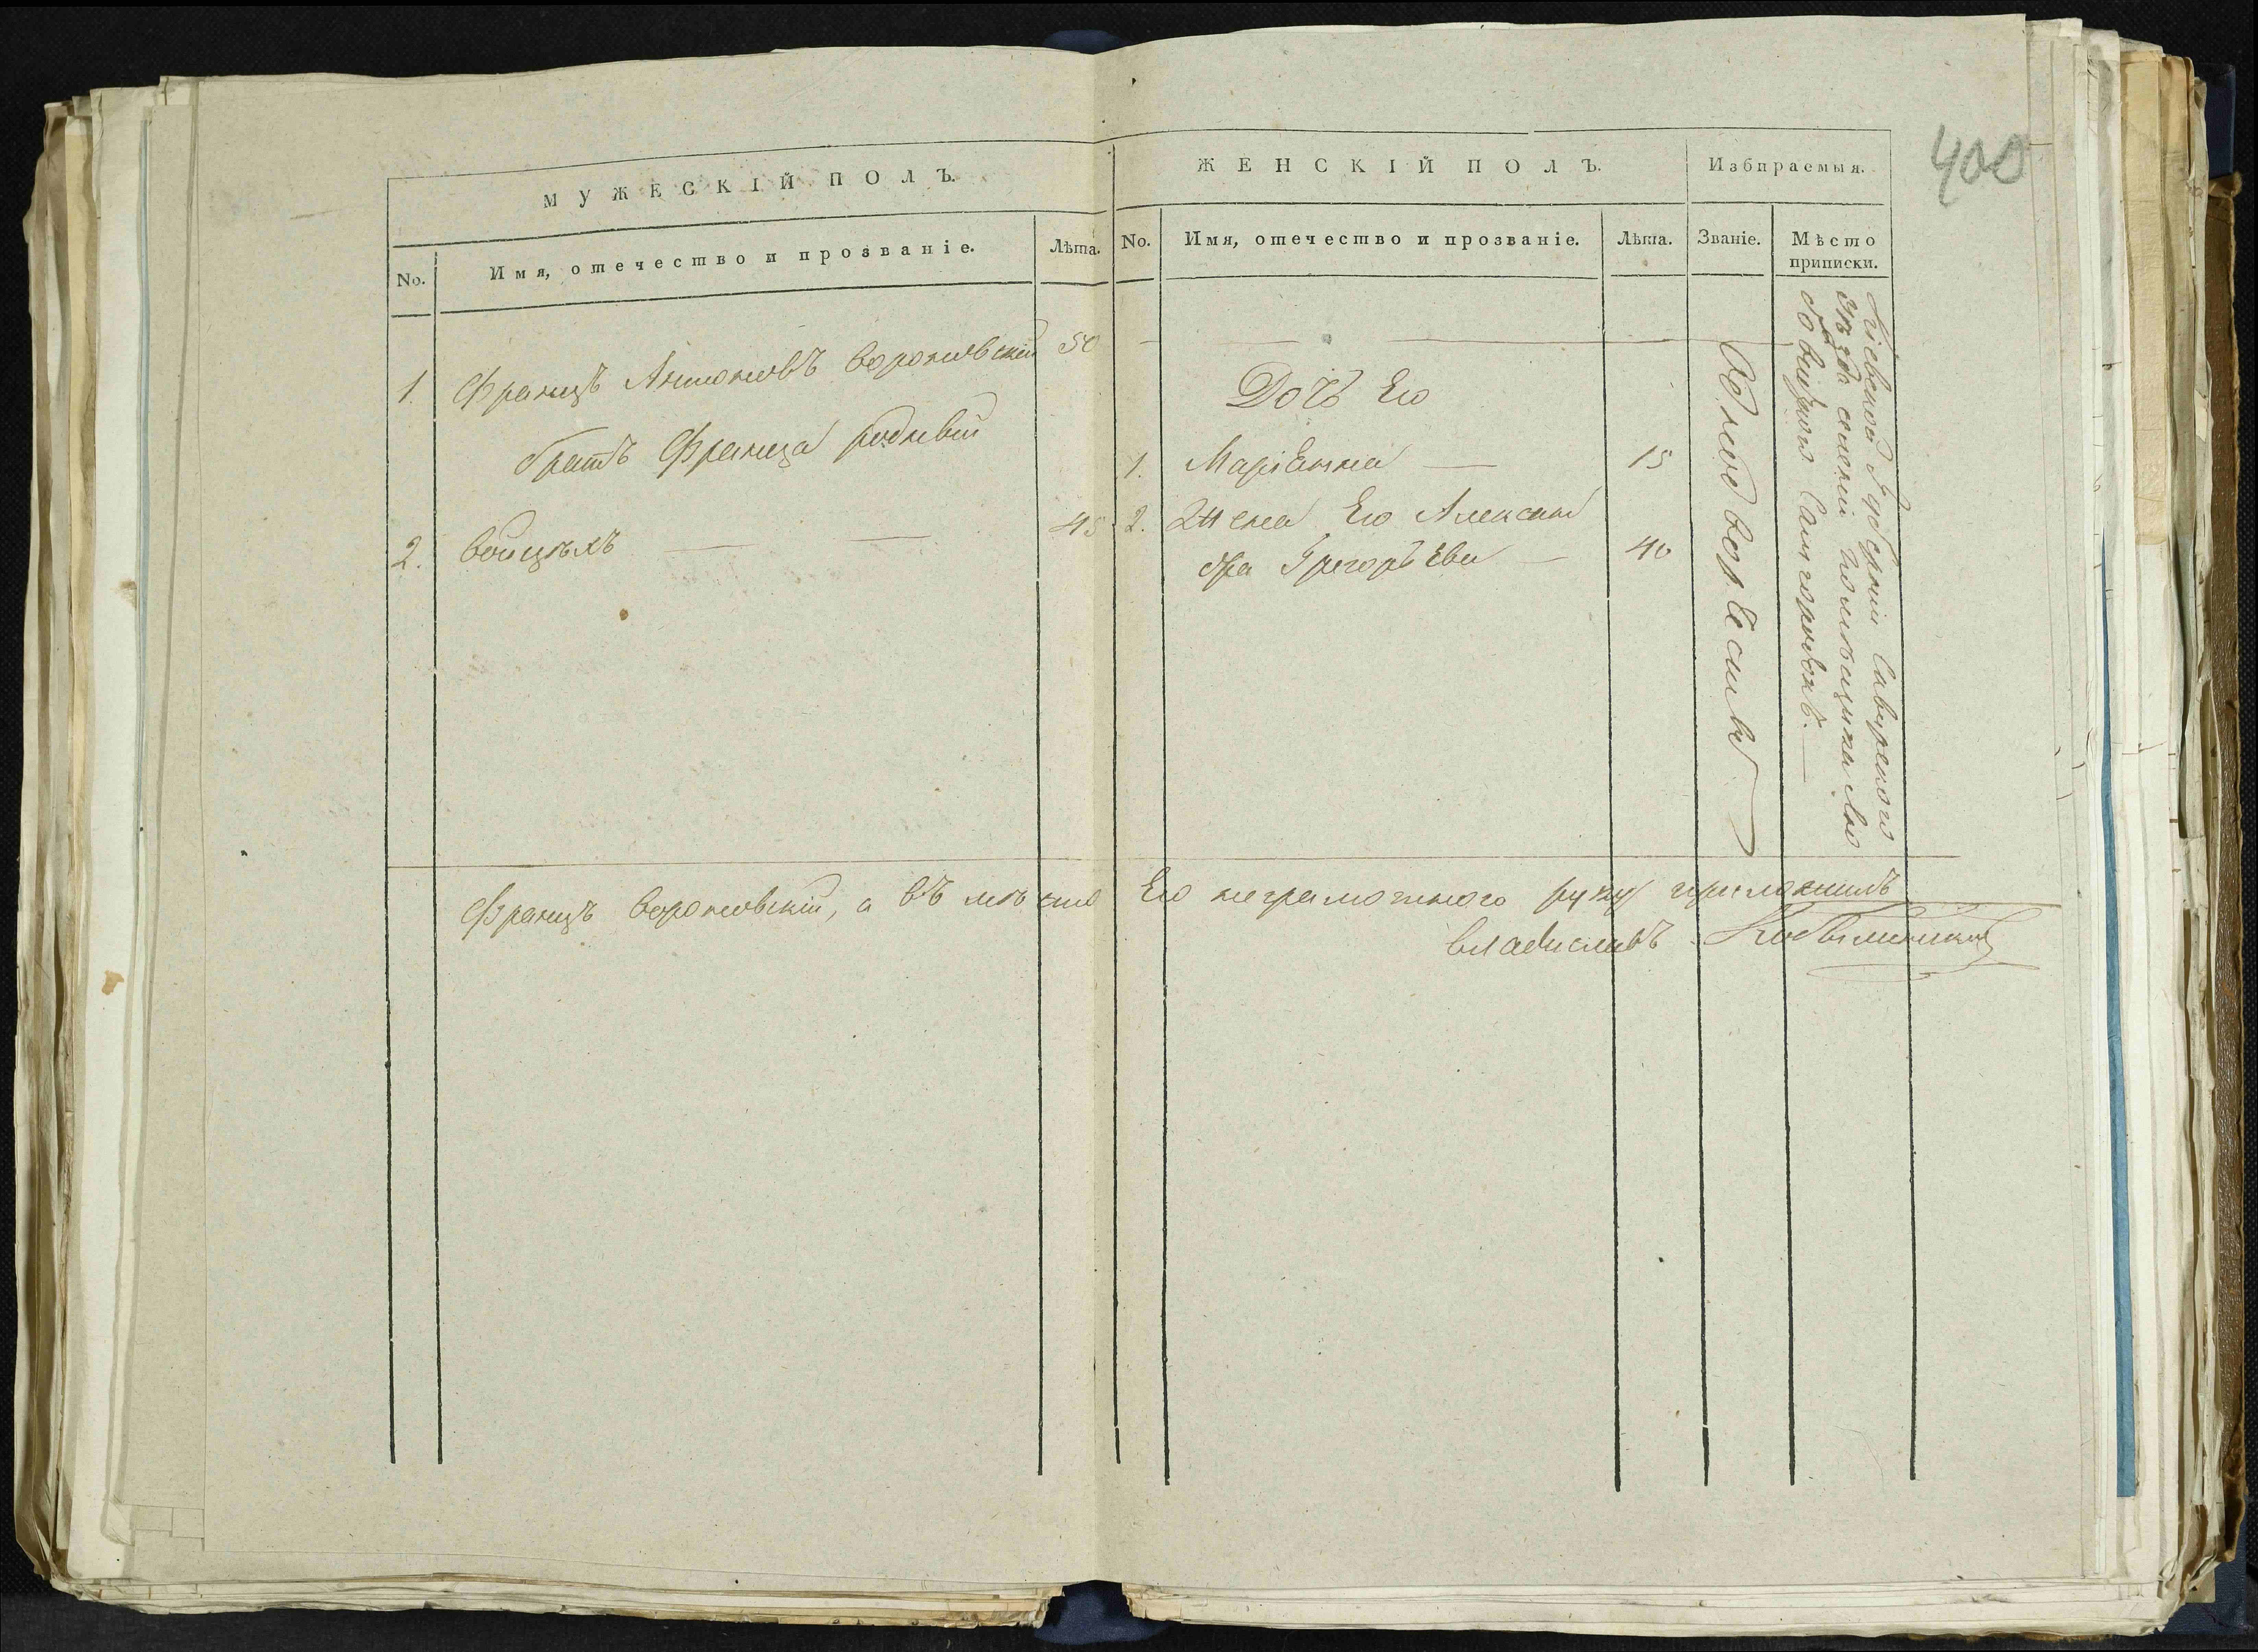 400
МУЖЕСКІЙ ПОЛЪ.
No.
Имя, отечество и прозваніе.
Лѣта.
1. Францъ Антоновъ Вороновскій 50
братъ Франца родный
2. Войцѣхъ — — 45
ЖЕНСКІЙ ПОЛЪ.
No.
Имя, отечество и прозваніе.
Лѣта.
Дочь Его
1. Маріанна — 15
2. Жена Его Алексан
дра Григорьева — 40
Избираемыя.
Званіе.
Мѣсто
приписки.
Однодворъсы
Кіевской Губерніи
уѣзда помѣщика
Францъ Вороновскій, а въ мѣсто Его неграмотного руку приложилъ
Владиславъ